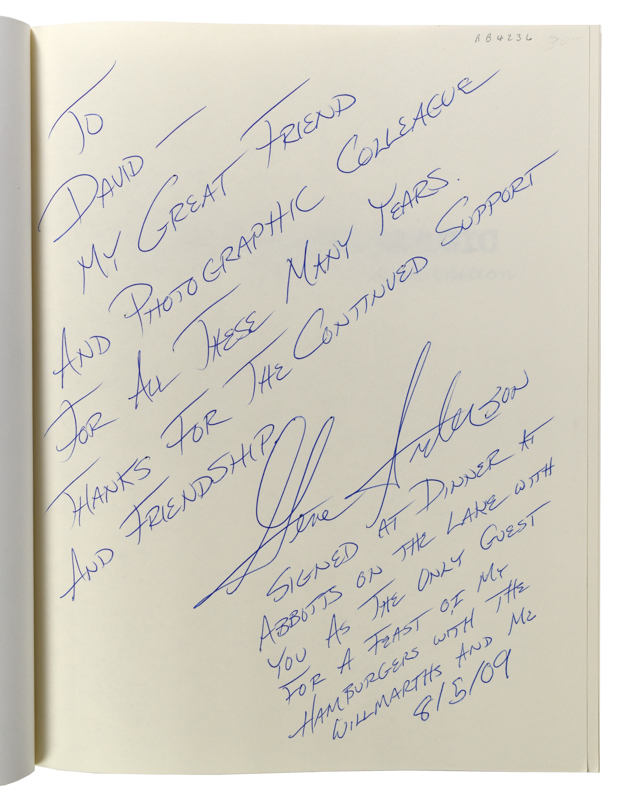 RB4236
TO
DAVID —
MY GREAT FRIEND
AND PHOTOGRAPHIC COLLEAGUE
FOR ALL THESE MANY YEARS.
THANKS FOR THE CONTINUED SUPPORT
AND FRIENDSHIP.
Gene Anderson
SIGNED AT DINNER AT
ABBOTTS ON THE LAKE WITH
YOU AS THE ONLY GUEST
FOR A FEAST OF MY
HAMBURGERS WITH THE
WILLMARTHS AND ME
8/5/09